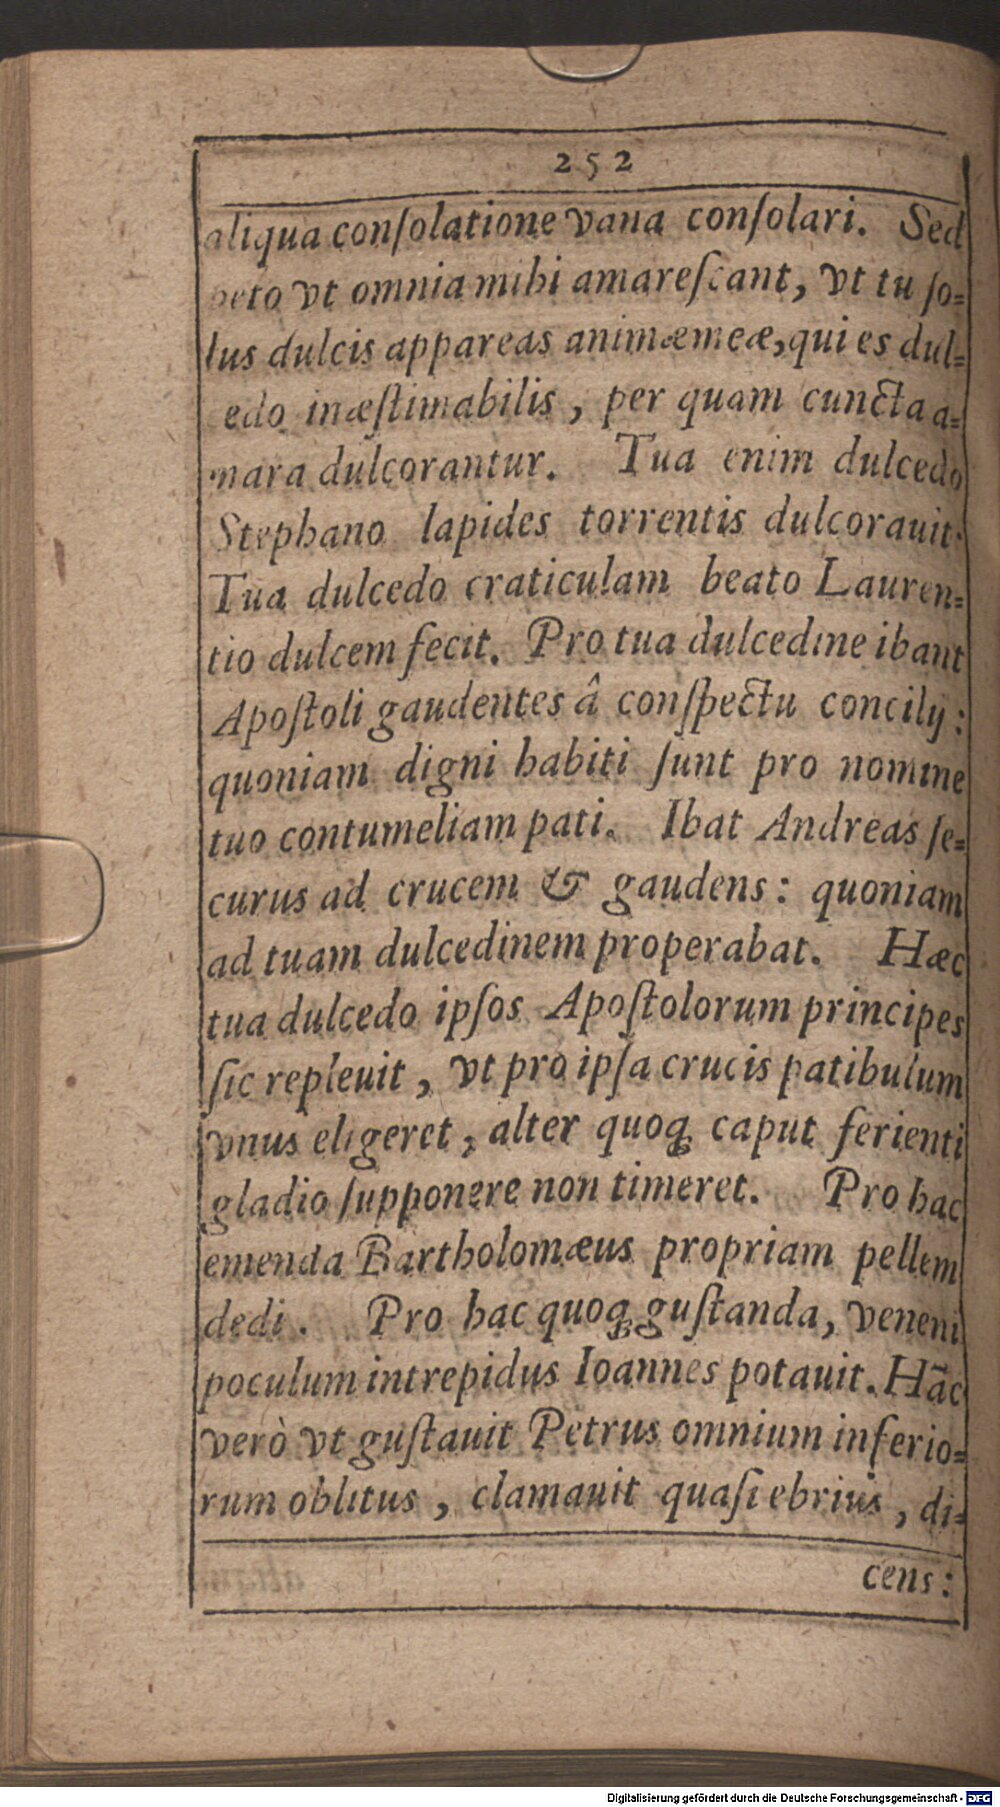 252
aliqua conſolatione vana conſolari. Sed
peto vt omnia mihi amareſcant, vt tu ſo=
lus dulcis appareas animæ meæ, qui es dul=
edo inæſtimabilis, per quam cuncta a=
mara dulcorantur. Tua enim dulcedo
Stephano lapides torrentis dulcorauit.
Tua dulcedo craticulam beato Lauren=
tio dulcem fecit. Pro tua dulcedine ibant
Apoſtoli gaudentes â conſpectu concilij:
quoniam digni habiti ſunt pro nomine
tuo contumeliam pati. Ibat Andreas ſe=
curus ad crucem & gaudens: quoniam
ad tuam dulcedinem properabat. Hæc
tua dulcedo ipſos Apoſtolorum principes
ſic repleuit, vt pro ipſa crucis patibulum
vnus eligeret, alter quoq; caput ferienti
gladio ſupponere non timeret. Pro hac
emenda Bartholomæus propriam pellem
dedi. Pro hac quoq; guſtanda, veneni
poculum intrepidus Ioannes potauit. Hãc
verò vt guſtauit Petrus omnium inferio=
rum oblitus, clamauit quaſi ebrius, di=
cens:
Digitalisierung gefördert durch die Deutsche Forschungsgemeinschaft - DFG